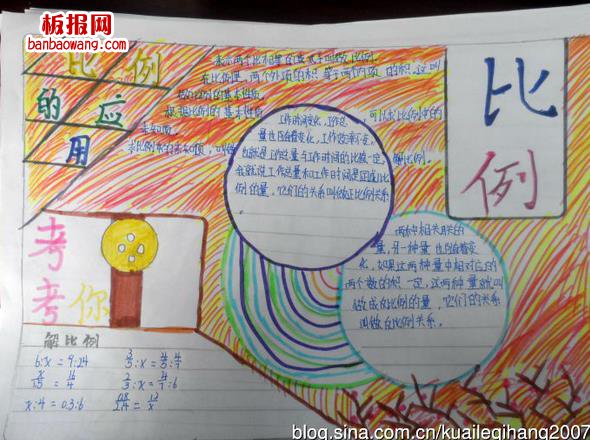 板报网
banbaowang.com
比例
的应
用
表示两个比相等的式子叫做比例。
在比例里，两个外项的积等于两个内项的积，这叫
做比例的基本性质。
根据比例的基本性质，
可以求比例中的
未知项。
求比例中的未知项，叫做
解比例。
工作时间变化，工作总
量也随着变化，工作效率不变，
也就是工作总量与工作时间的比值一定，
我就说工作总量和工作时间是成正比
例的量，它们的关系叫做正比例关系
比
例
两种相关联的
量，另一种量也随着变
化，如果这两种量中相对应的
两个数的积一定，这两种量就叫
做成反比例的量，它们的关系
叫做反比例关系。
考
考你
解比例
6:x=9:24
x:4=0.3:6
blog.sina.com.cn/kuaileqihang2007